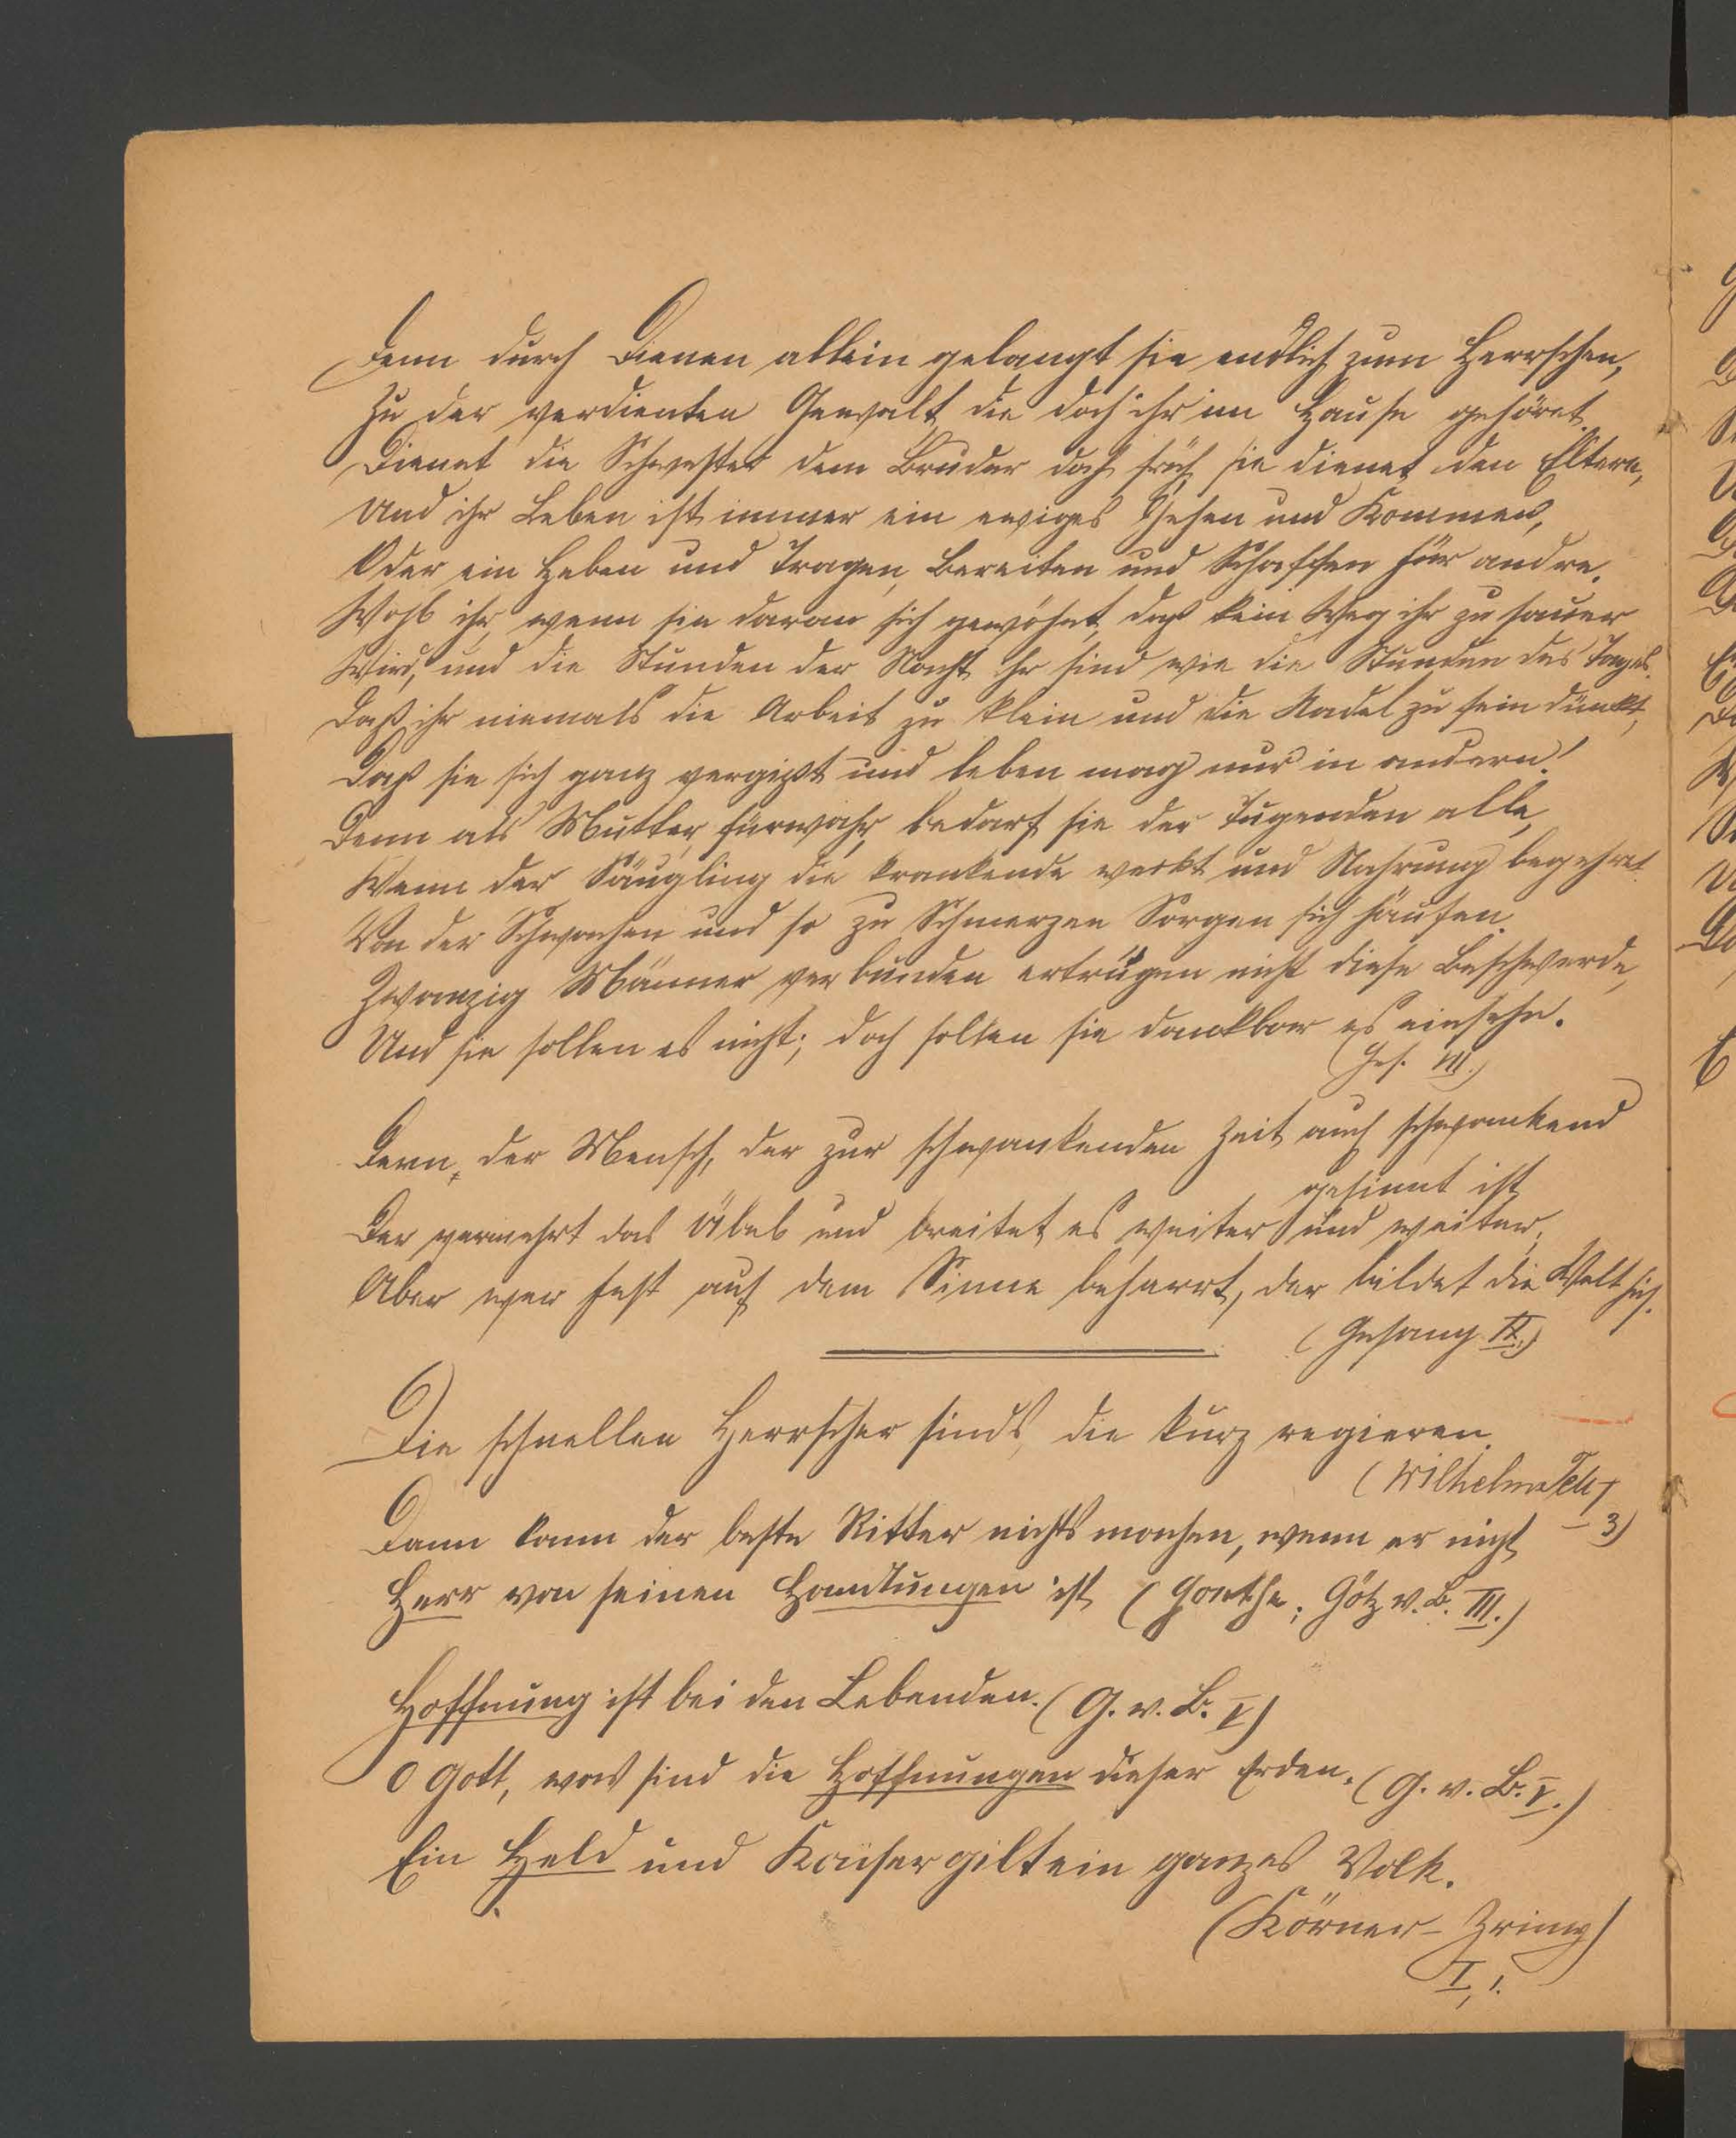 Denn durch Dienen allein gelangt sie endlich zum Herrschen,
Zu der verdienten Gewalt, die doch ihr im Hause gehöret.
Dienet die Schwester dem Bruder doch früh, sie dienet den Eltern,
Und ihr Leben ist immer ein ewiges Gehen und Kommen,
Oder ein Heben und Tragen, Bereiten und Schaffen für andre.
Wohl ihr, wenn sie daran sich gewöhnt, daß kein Weg ihr zu sauer
Wird, und die Stunden der Nacht ihr sind wie die Stunden des Tages.
Daß ihr niemals die Arbeit zu klein und die Nadel zu fein dünkt,
Daß sie sich ganz vergißt und leben mag nur in andern!
Denn als Mutter, fürwahr, bedarf sie der Tugenden alle,
Wenn der Säugling die krankende weckt und Nahrung begehret
Von der Schwachen und so zu Schmerzen Sorgen sich häufen.
Zwanzig Männer verbunden ertrügen nicht diese Beschwerde,
Und sie sollen es nicht; doch sollen sie dankbar es einsehn.
(Ges. VII.)
Denn, der Mensch, der zur schwankenden Zeit auch schwankend
gesinnt ist
Der vermehrt das Übel und breitet es weiter und weiter,
Aber wer fest auf dem Sinne beharrt, der bildet die Welt sich.
(Gesang IX.)
Die schnellen Herrscher sinds, die kurz regieren.
(Wilhelm Tell I
– 3)
Dann kann der beste Ritter nichts machen, wenn er nicht
Herr von seinen Handlungen ist (Goethe; Götz v. B. III.)
Hoffnung ist bei den Lebenden. (G. v. B. V)
O Gott, was sind die Hoffnungen dieser Erden. (G. v. B. V.)
Ein Held und Kaiser gilt ein ganzes Volk.
(Körner – Zriny)
I, 1.